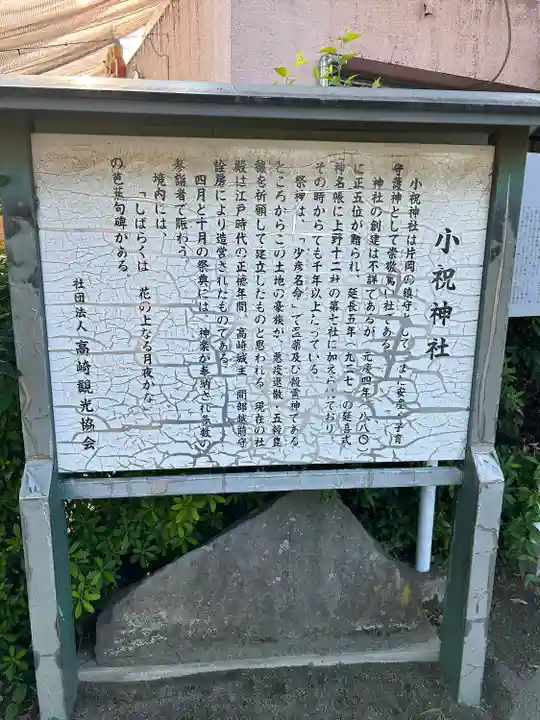 小祝神社
小祝神社は片岡の鎮守
守護神として崇敬篤い社である
神社の創建は不詳であるが、元慶四年(八八〇)
に正五位が贈られ、延長五年(九二七)の延喜式
神名帳に上野十二社の第七社に加えられており、
その時からでも千年以上たっている。
祭神は、「少彦名命」で医薬及び穀霊神である
ところからこの土地の豪族が、悪疫退散・五穀豊
穣を祈願して建立したものと思われる。現在の社
殿は江戸時代の正徳年間、高崎城主 間部越前守
詮房により造営されたものである。
四月と十月の祭典には、神楽が奉納され多数の
参詣者で賑わう。
境内には、
「しばらくは 花の上なる月夜かな」
の芭蕉句碑がある。
社団法人 高崎観光協会